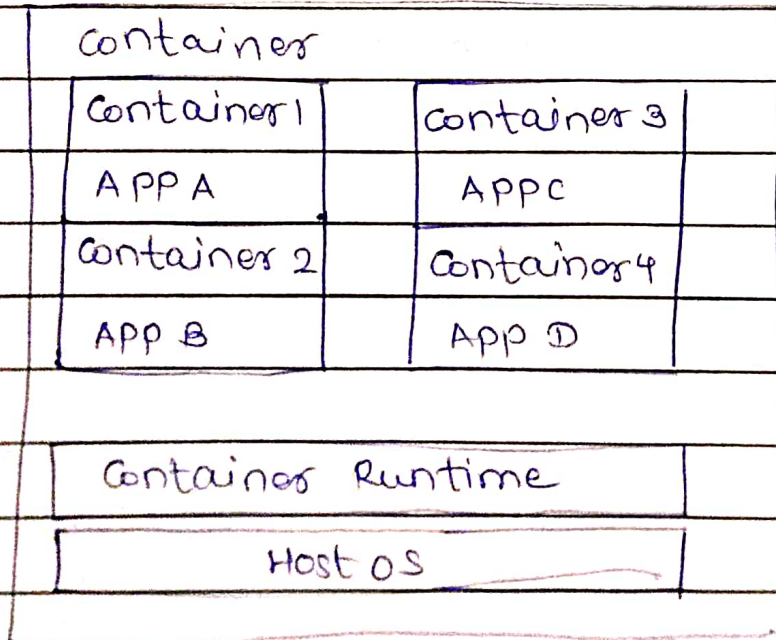 Container
Container 1
APP A
Container 2
APP B
Container 3
APP C
Container 4
APP D
Container Runtime
Host OS